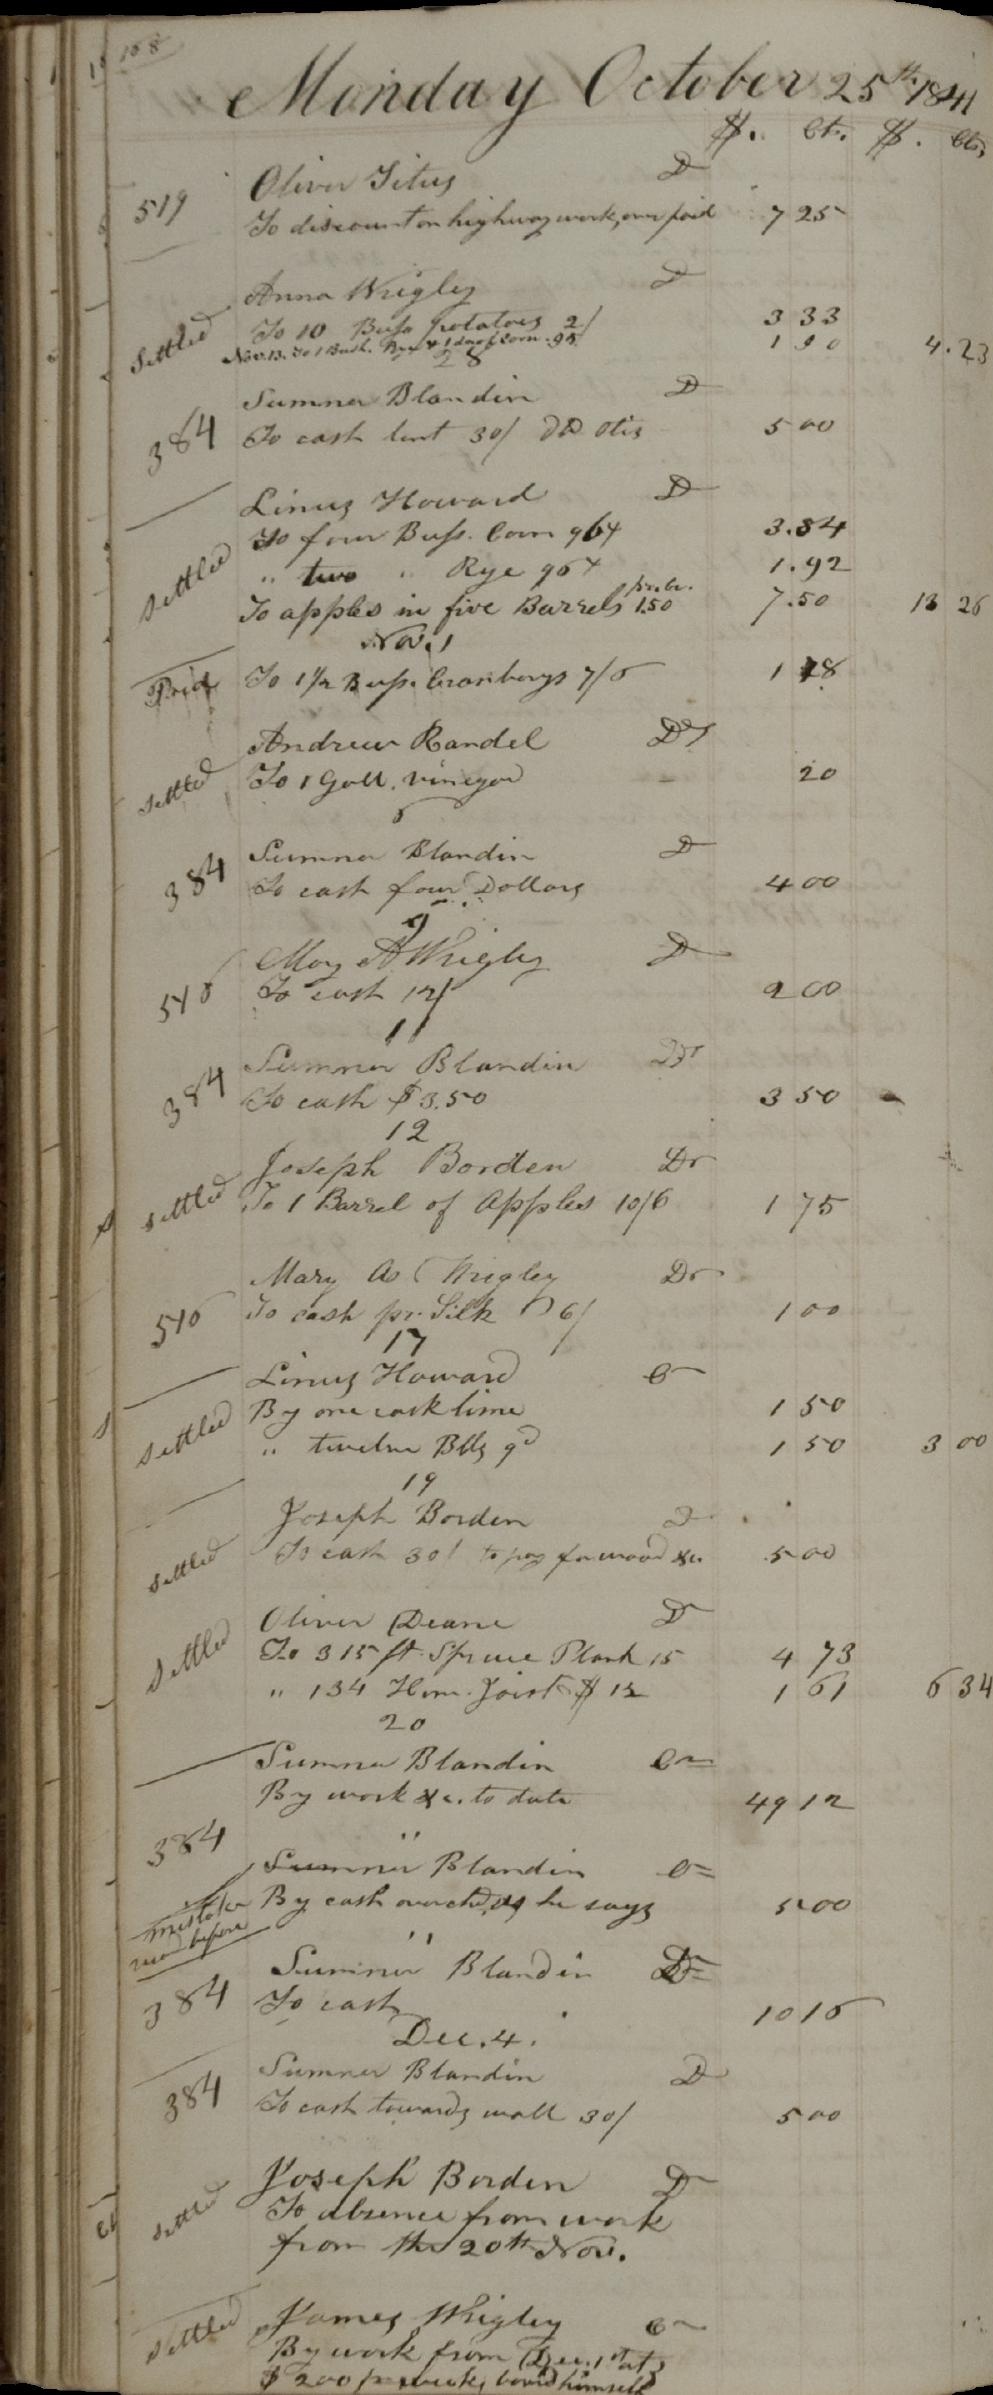 158
Monday October 25th 1841
$. Cts. $. Cts.
519 Oliver Titus D
To discount on highway work, over paid 7 25
Anna Wrigley D
Settled To 10 Bush potatoes 2/ 3 33
Nov. 13. To 1 Bush. Rye & 1 do of Corn .95 1 90 4.23
28
384 Sumner Blandin D
To cash lent 30/ DD Otis 5 00
Linus Howard D
To four Bush. Corn 96 3.84
Settled " two " Rye 96 1.92
To apples in five Barrels pr. br. 1.50 7.50 13 26
Nov. 1
Paid To 1 1/2 Bush. Cranberys 7/6 1 88
Andrew Randel Dr
Settled To 1 Gall. vinegar 20
6
384 Sumner Blandin D
To cash four Dollars 4 00
9
Mary A Wrigley D
516 To cash 12/ 2 00
11
384 Sumner Blandin Dr
To cash $3.50 3 50
12
Joseph Borden Dr
settled To 1 Barrel of Apples 10/6 1 75
Mary A Wrigley Dr
516 To cash pr. Silk 6/ 1 00
17
Linus Howard Cr
Settled By one cask lime 1 50
" twelve Bbls 9d 1 50 3 00
19
Joseph Borden D
settled To cash 30/ to pay for wood &c. 5 00
Oliver Deane D
Settled To 315 ft. Spruce Plank 15 4 73
" 134 Hem. Joist $12 1 61 6 34
20
Sumner Blandin Cr
By work &c. to date 49 12
384 "
Sumner Blandin Cr
mistake By cash overch'd, as he says 5.00
before "
Sumner Blandin Dr
384 To cash 10 16
Dec. 4.
Sumner Blandin D
384 To cash towards wall 30/ 5 00
Joseph Borden D
settled To absence from work
from the 20th Nov.
Settled James Wrigley Cr
By work from Dec. 1st at
$ 2.00 pr. week, board himself